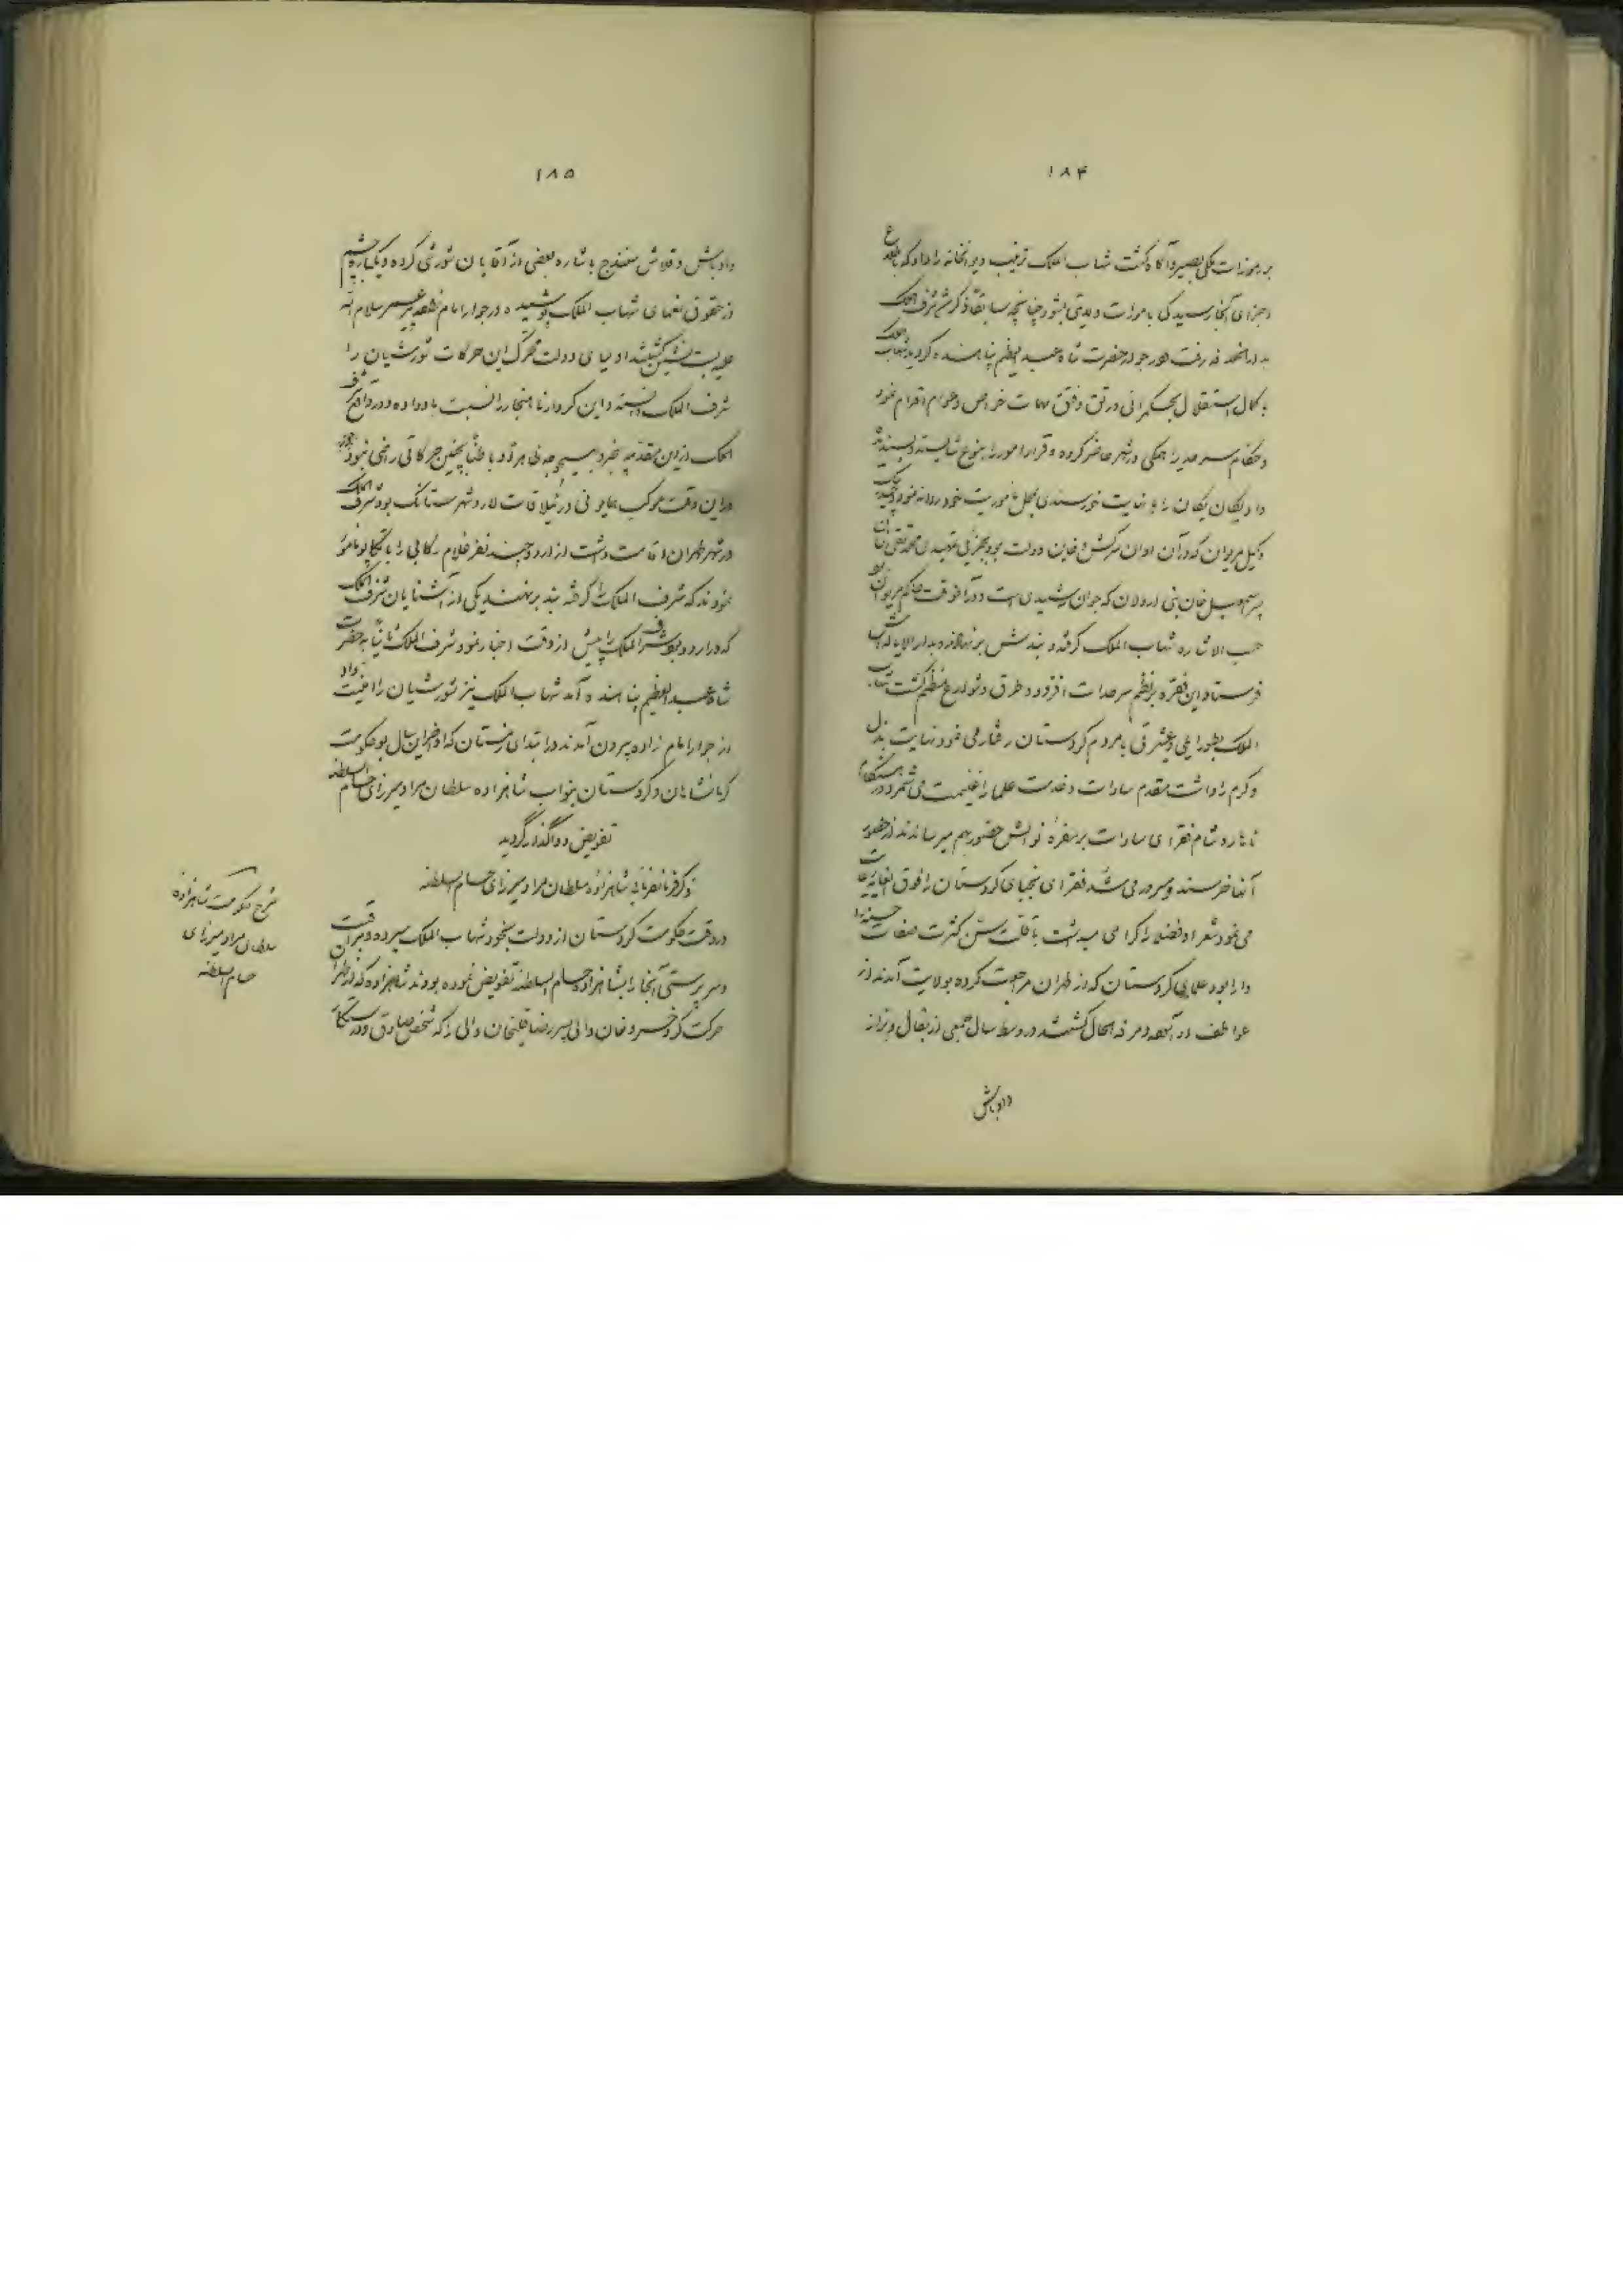 ۱۸۴
بر رموزات ملکی بصیر و آگاه گشت شهاب الملک ترتیب دیوانخانه را داد که باطلاع
اجزای آنجا رسیدگی بامورات ولایتی بشود چنانچه سابقا ذکرش شرف الملک
بدار الخلافه رفت در جوار حضرت شاه عبد العظیم پناهنده گردید شهاب الملک
بکمال استقلال بحکمرانی و رتق و فتق مهمات خواص و عوام اقدام نمود
و حکام سرحد را همگی در شهر حاضر کرده و قرار امور را بنوع شایسته و پسندیده
داد و یکان یکان را با نهایت خورسندی بمحل مأموریت خود روانه نمود
وکیل مریوان که در آن اوان سرکش و خاین دولت بود محمد تقی خان
پسر اسمعیل خان بنی اردلان که جوان رشیدی است و در آنوقت حاکم مریوان بود
حسب الاشاره شهاب الملک گرفته و بندش بر نهاده و بدار الایاله اش
فرستاد این فقره بر نظم سرحدات افزود و طرق و شوارع منظم گشت شهاب
الملک بطور ایلی و عشرتی با مردم کردستان رفتار می نمود نهایت بذل
و کرم را داشت مقدم سادات و خدمت علما را غنیمت می شمرد و در هنگام
ناهار و شام فقرای سادات بر سفره نوالش حضور بهم میرساندند از حضور
آنها خرسند و مسرور می شد فقرای نجبای کردستان را فوق الغایه رعایت
می نمود شعرا و فضلا را گرامی میداشت با قلت سن کثرت صفات حسنه را
دارا بود علمای کردستان که از طهران مراجعت کرده بولایت آمدند از
عواطف در آسوده و مرفه الحال گشتند در وسط سال جمعی از بقال و بزاز
و اوباش
۱۸۵
و اوباش و قلاش سنندج باشاره بعضی از آقایان شورشی کرده و یکباره چشم
از حقوق نعمای شهاب الملک پوشیده در جوار امام زاده پیر عمر سلام الله
علیه بست نشین گشتند اولیای دولت محرک این حرکات شورشیان را
شرف الملک دانسته و این کردار ناهنجار را نسبت باو داده و در واقع شرف
الملک از این مقدمه بیخبر و بهیچوجه فی ظاهرا و باطنا بچنین حرکاتی راضی نبود
در این وقت موکب همایونی در ییلاقات لار و شهرستانک بود شرف الملک
در شهر طهران اقامت داشت از اردو چند نفر غلام رکابی را با تکاپو مأمور
نمودند که شرف الملک را گرفته بند بر نهند یکی از آشنایان شرف الملک
که در اردو بود شرف الملک را پیش از وقت اخبار نمود شرف الملک ثانیا به حضرت
شاه عبد العظیم پناهنده آمد شهاب الملک نیز شورشیان را امنیت داد
از جوار امام زاده بیرون آمدند در ابتدای زمستان که اواخر این سال بود حکومت
کرمانشاهان و کردستان بنواب شاهزاده سلطان مراد میرزای حسام السلطنه
تفویض و واگذار گردید
ذکر فرمانفرمائی شاهزاده سلطان مراد میرزای حسام السلطنه
در وقت حکومت کردستان از دولت بخود شهاب الملک سپرده
و سرپرستی آنجا را بشاهزاده حسام السلطنه تفویض نموده بودند شاهزاده که از طهران
حرکت کرد خسرو خان والی پسر رضا قلیخان والی را که شخص صادق و درستکار
شرح حکومت شاهزاده
سلطان مراد میرزای
حسام السلطنه